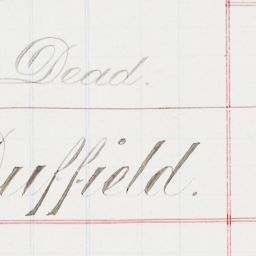 Dead.
Duffield.